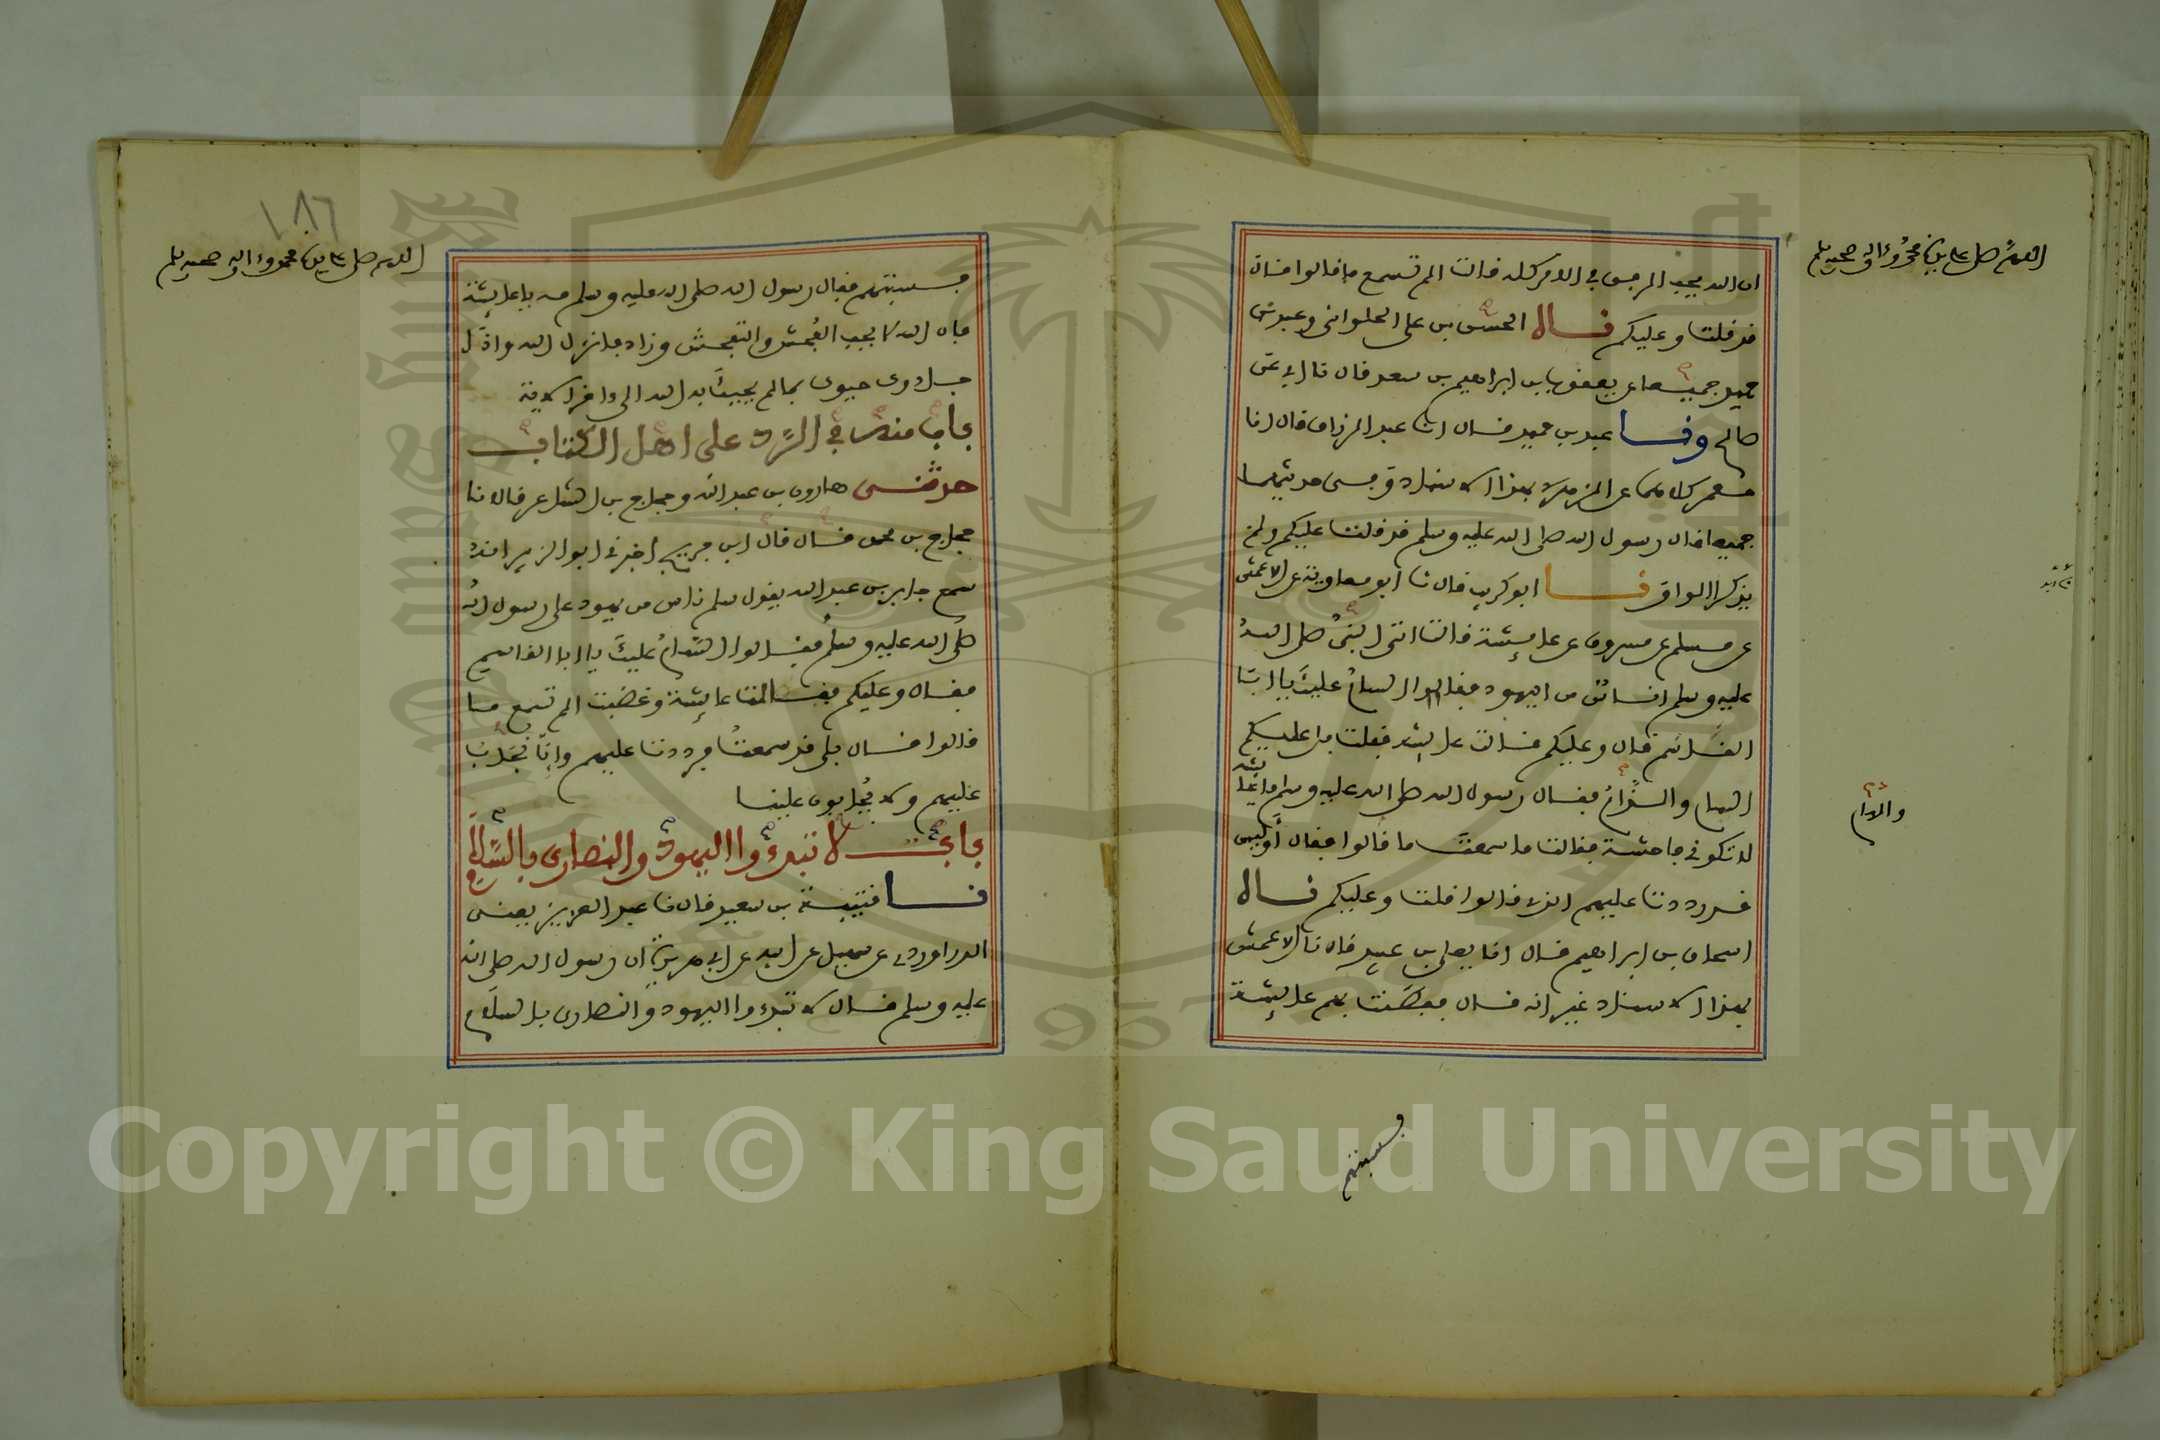 اللهم صل على سيدنا محمد وءاله وصحبه وسلم
ان الله يحب الرفق في الامر كله قالت الم تسمع ما قالوا قال
قد قلت وعليكم قال الحسن بن علي الحلواني وعبد بن
حميد جميعا عن يعقوب بن ابراهيم بن سعد قال نا ابي عن
صالح ونا عبد بن حميد قال انا عبد الرزاق قال انا
معمر كلاهما عن الزهري بهذا الاسناد وفي حديثهما
جميعا قال رسول الله صلى الله عليه وسلم قد قلت عليكم ولم
يذكرا الواو نا ابو كريب قال نا ابو معاوية عن الاعمش
عن مسلم عن مسروق عن عايشة قالت اتى النبي صلى الله
عليه وسلم اناس من اليهود فقالوا السام عليك يا ابا
القاسم قال وعليكم قالت عايشة فقلت بل عليكم
السام والذام فقال رسول الله صلى الله عليه وسلم يا عايشة
لا تكوني فاحشة فقالت ما سمعت ما قالوا فقال أوليس
قد رددت عليهم الذي قالوا قلت وعليكم قال
اسحاق بن ابراهيم قال انا يعلى بن عبيد قال نا الاعمش
بهذا الاسناد غير انه قال ففطنت بهم عايشة
والدام
فسبتهم
١٨٦
اللهم صل على سيدنا محمد وءاله وصحبه وسلم
فسبتهم فقال رسول الله صلى الله عليه وسلم مه يا عايشة
فان الله لا يحب الفحش والتفحش وزاد فانزل الله واذا
جاءوك حيوك بما لم يحيك به الله الى ءاخر الاية
باب منه في الرد على اهل الكتاب
حدثنى هارون بن عبد الله وحجاج بن الشاعر قالا نا
حجاج بن محمد قال قال ابن جريج اخبرني ابو الزبير انه
سمع جابر بن عبد الله يقول سلم ناس من يهود على رسول الله
صلى الله عليه وسلم فقالوا السام عليك يا ابا القاسم
فقال وعليكم فقالت عايشة وغضبت الم تسمع ما
قالوا قال بلى قد سمعت فرددت عليهم وإنا نجاب
عليهم ولا يجابون علينا
باب لا تبدءوا اليهود والنصارى بالسلام
نا قتيبة بن سعيد قال نا عبد العزيز يعنى
الدراوردي عن سهيل عن ابيه عن ابي هريرة ان رسول الله صلى الله
عليه وسلم قال لا تبدءوا اليهود والنصارى بالسلام
Copyright © King Saud University
1957